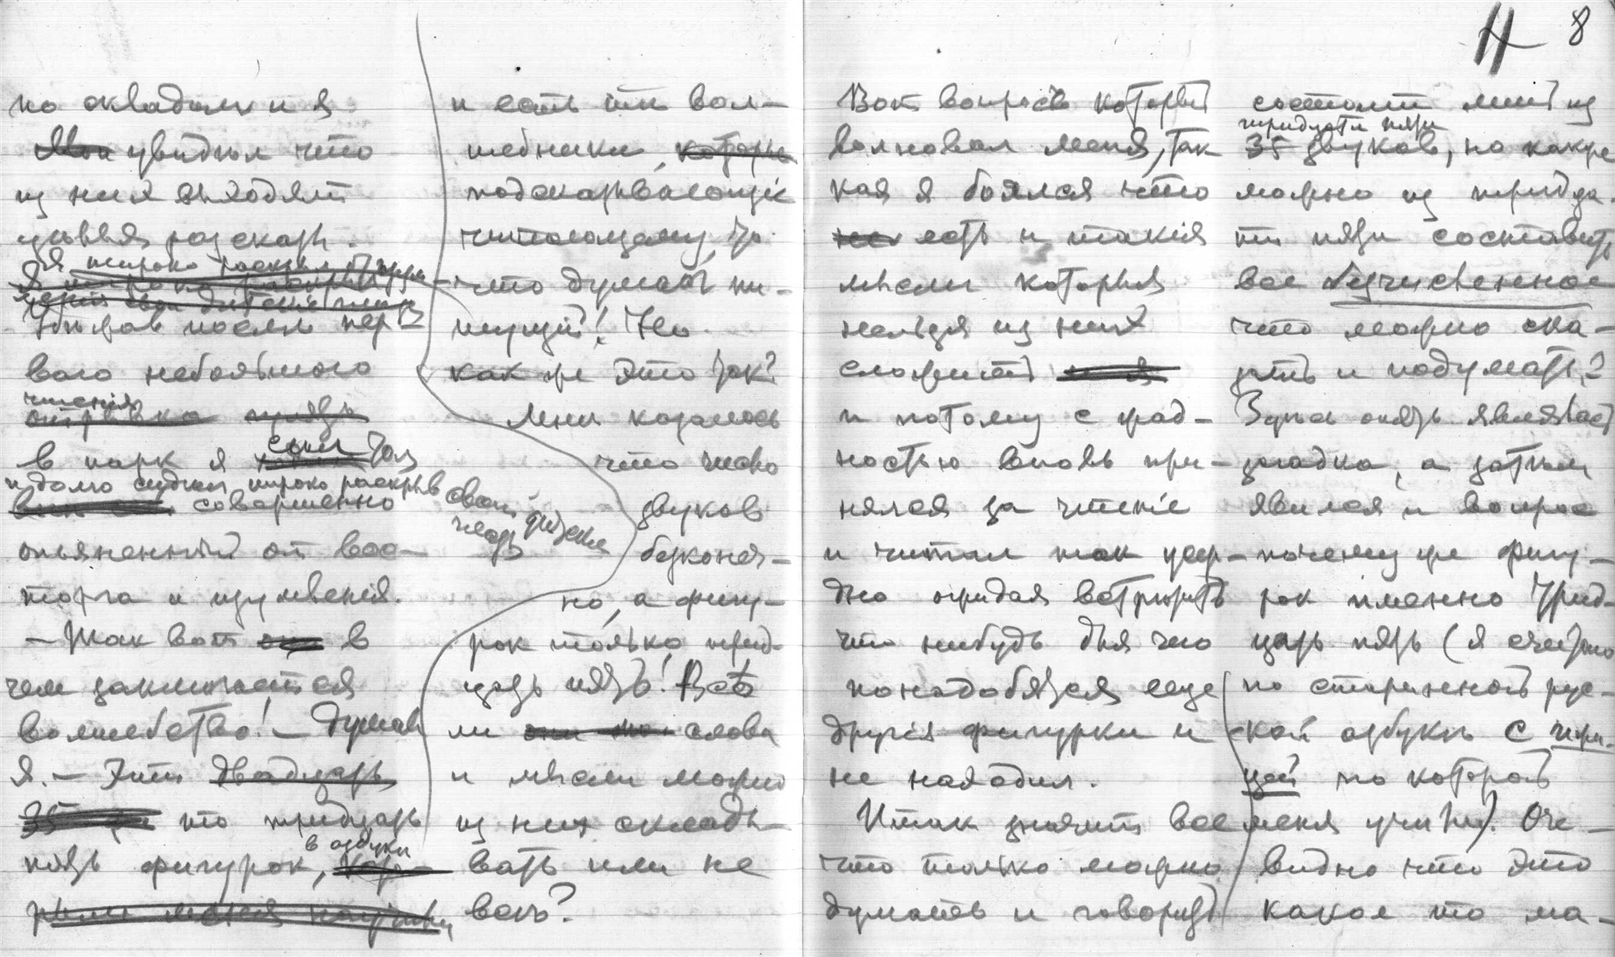 по складам и я
увидел что
из них выходят
целыя розсказы.
Убежав после пер-
вого небольшого
чтения
в парк я
и долго сидел широко раскрыв свои
совершенно
детские
опьяненный от вос-
торга и изумления.
– Так вот в
чем заключается
волшебство! – Думал
я. – Эти
что тридцать
пять фигурок, в азбуке
и есть те вол-
шебники,
подсказывающие
читающему то
что думает пи-
шущий! Но
как же это так?
Мне казалось
что число
звуков
безконеч-
но, а фигу-
рок только трид-
цать пять! Все
ли слова
и мысли можно
из них склады-
вать или не
все?
8
Вот вопрос который
волновал меня, так
как я боялся что
есть и такия
мысли которыя
нельзя из них
сложить
и потому с жад-
ностью вновь при-
нялся за чтенiе
и читал так усер-
дно ожидая встретить
что нибудь для чего
понадобятся еще
другiя фигурки и
не находил.
Итак значит все
что только можно
думать и говорить
состоит лишь из
тридцати пяти
35 звуков, но как же
можно из тридца-
ти пяти составить
все безчисленное
что можно ска-
зать и подумать?
Здесь опять являлась
загадка, а затем
явился и вопрос
почему же фигу-
рок именно трид-
цать пять (я считаю
по старинной рус-
ской азбуке с ижи-
цей по которой
меня учили). Оче-
видно что это
какое то ма-